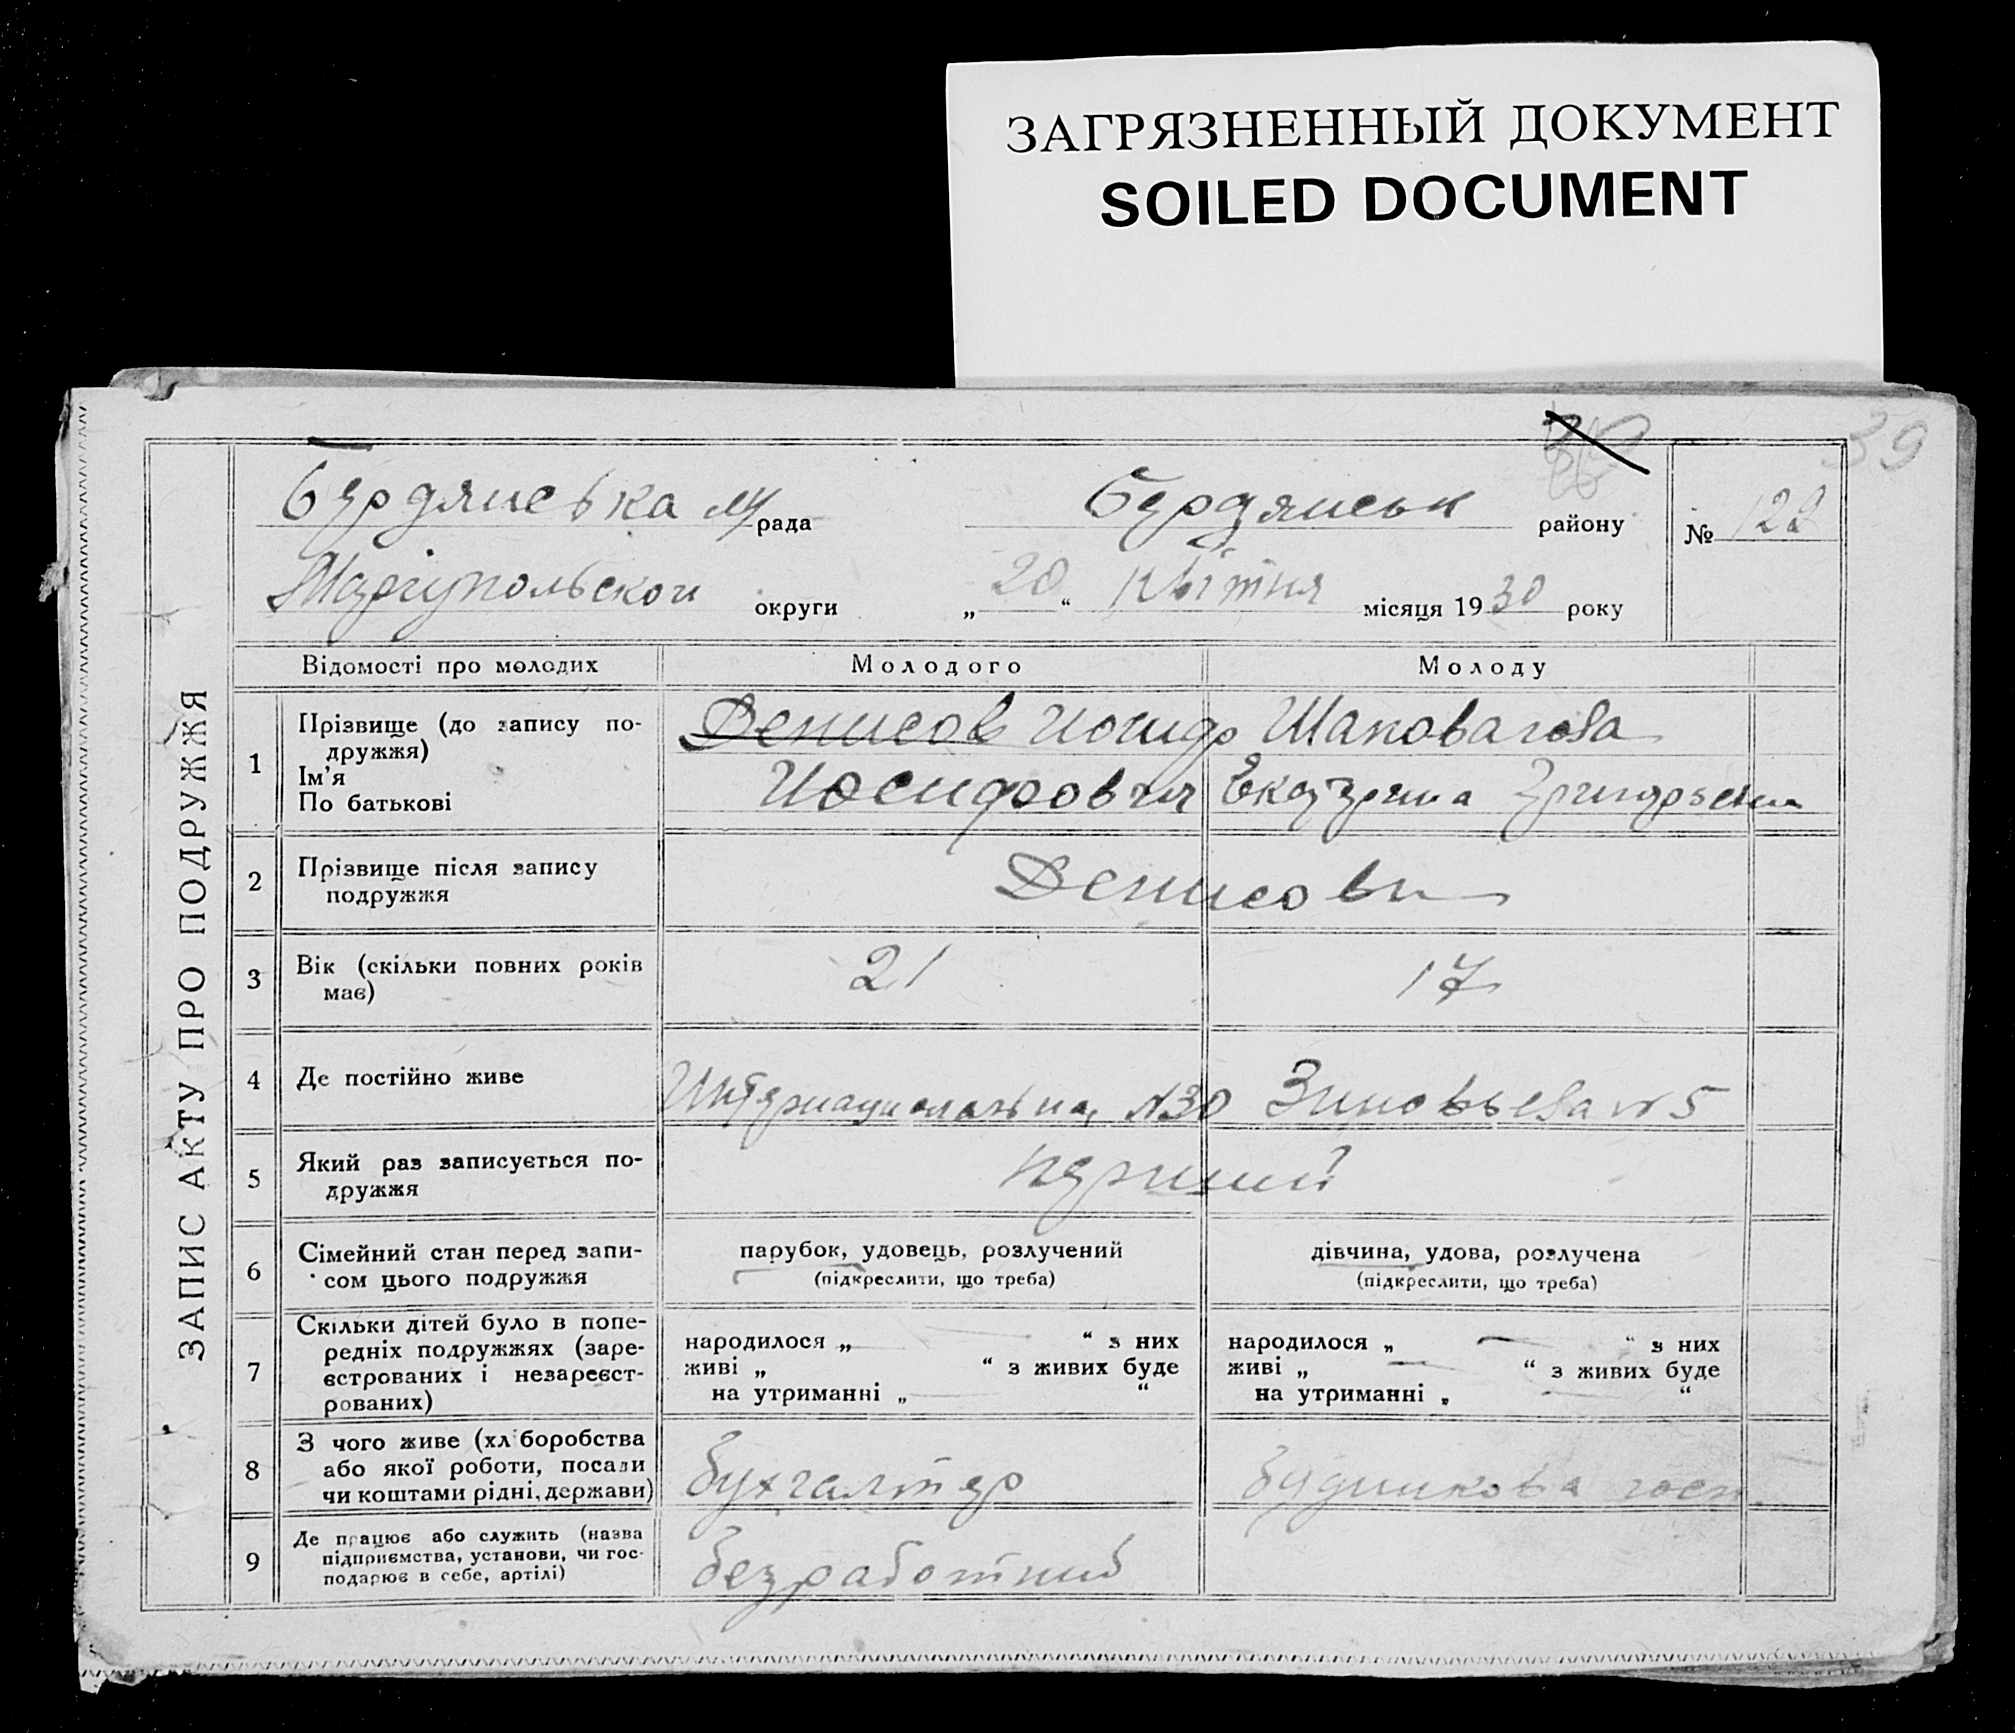 ЗАГРЯЗНЕННЫЙ ДОКУМЕНТ
SOILED DOCUMENT
39
ЗАПИС АКТУ ПРО ПОДРУЖЖЯ
Бердянська м/рада Бердянськ району № 122
Маріупольскои округи „20“ квітня місяця 1930 року
Відомості про молодих Молодого Молоду
1 Прізвище (до запису по-
дружжя)
Ім’я
По батькові
Денисов Иосиф
Иосифович
Шаповалова
Екатерина Григорьевна
2 Прізвище після запису
подружжя
Денисови
3 Вік (скільки повних років
має)
21 17
4 Де постійно живе
Интернациональна, №30 Зиновьева №5
5 Який раз записується по-
дружжя
перший
6 Сімейний стан перед запи-
сом цього подружжя
парубок, удовець, розлучений
(підкреслити, що треба)
дівчина, удова, розлучена
(підкреслити, що треба)
7 Скільки дітей було в попе-
редніх подружжях (заре-
єстрованих і незареєст-
рованих)
народилося „ — “ з них
живі „ “ з живих буде
на утриманні „ — “
народилося „ — “ з них
живі „ — “ з живих буде
на утриманні „ — “
8 З чого живе (хліборобства
або якої роботи, посади
чи коштами рідні, держави)
бухгалтер
будинкова госп.
9 Де працює або служить (назва
підприємства, установи, чи гос-
подарює в себе, артілі)
безработний